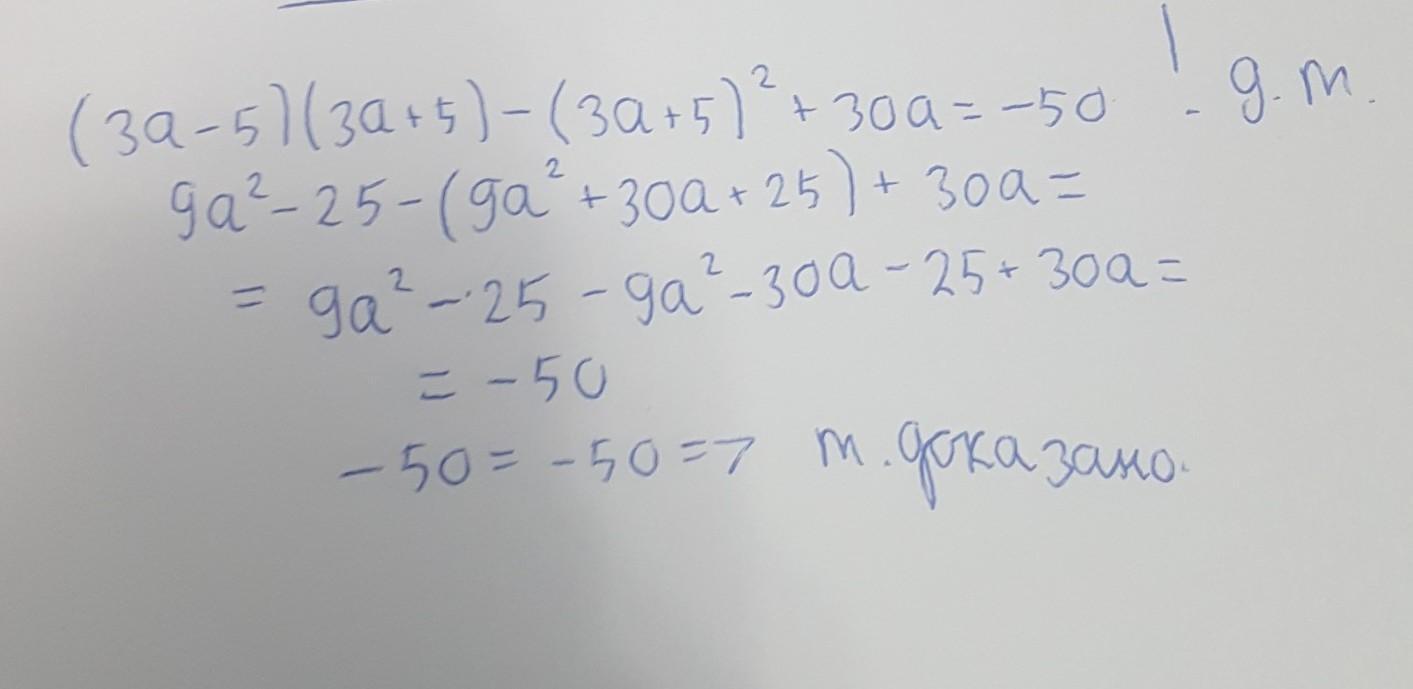 (3a-5)(3a+5)-(3a+5)²+30a=-50 ! g.m.
9a²-25-(9a²+30a+25)+30a=
=9a²-25-9a²-30a-25+30a=
=-50
-50=-50=> т.доказано.